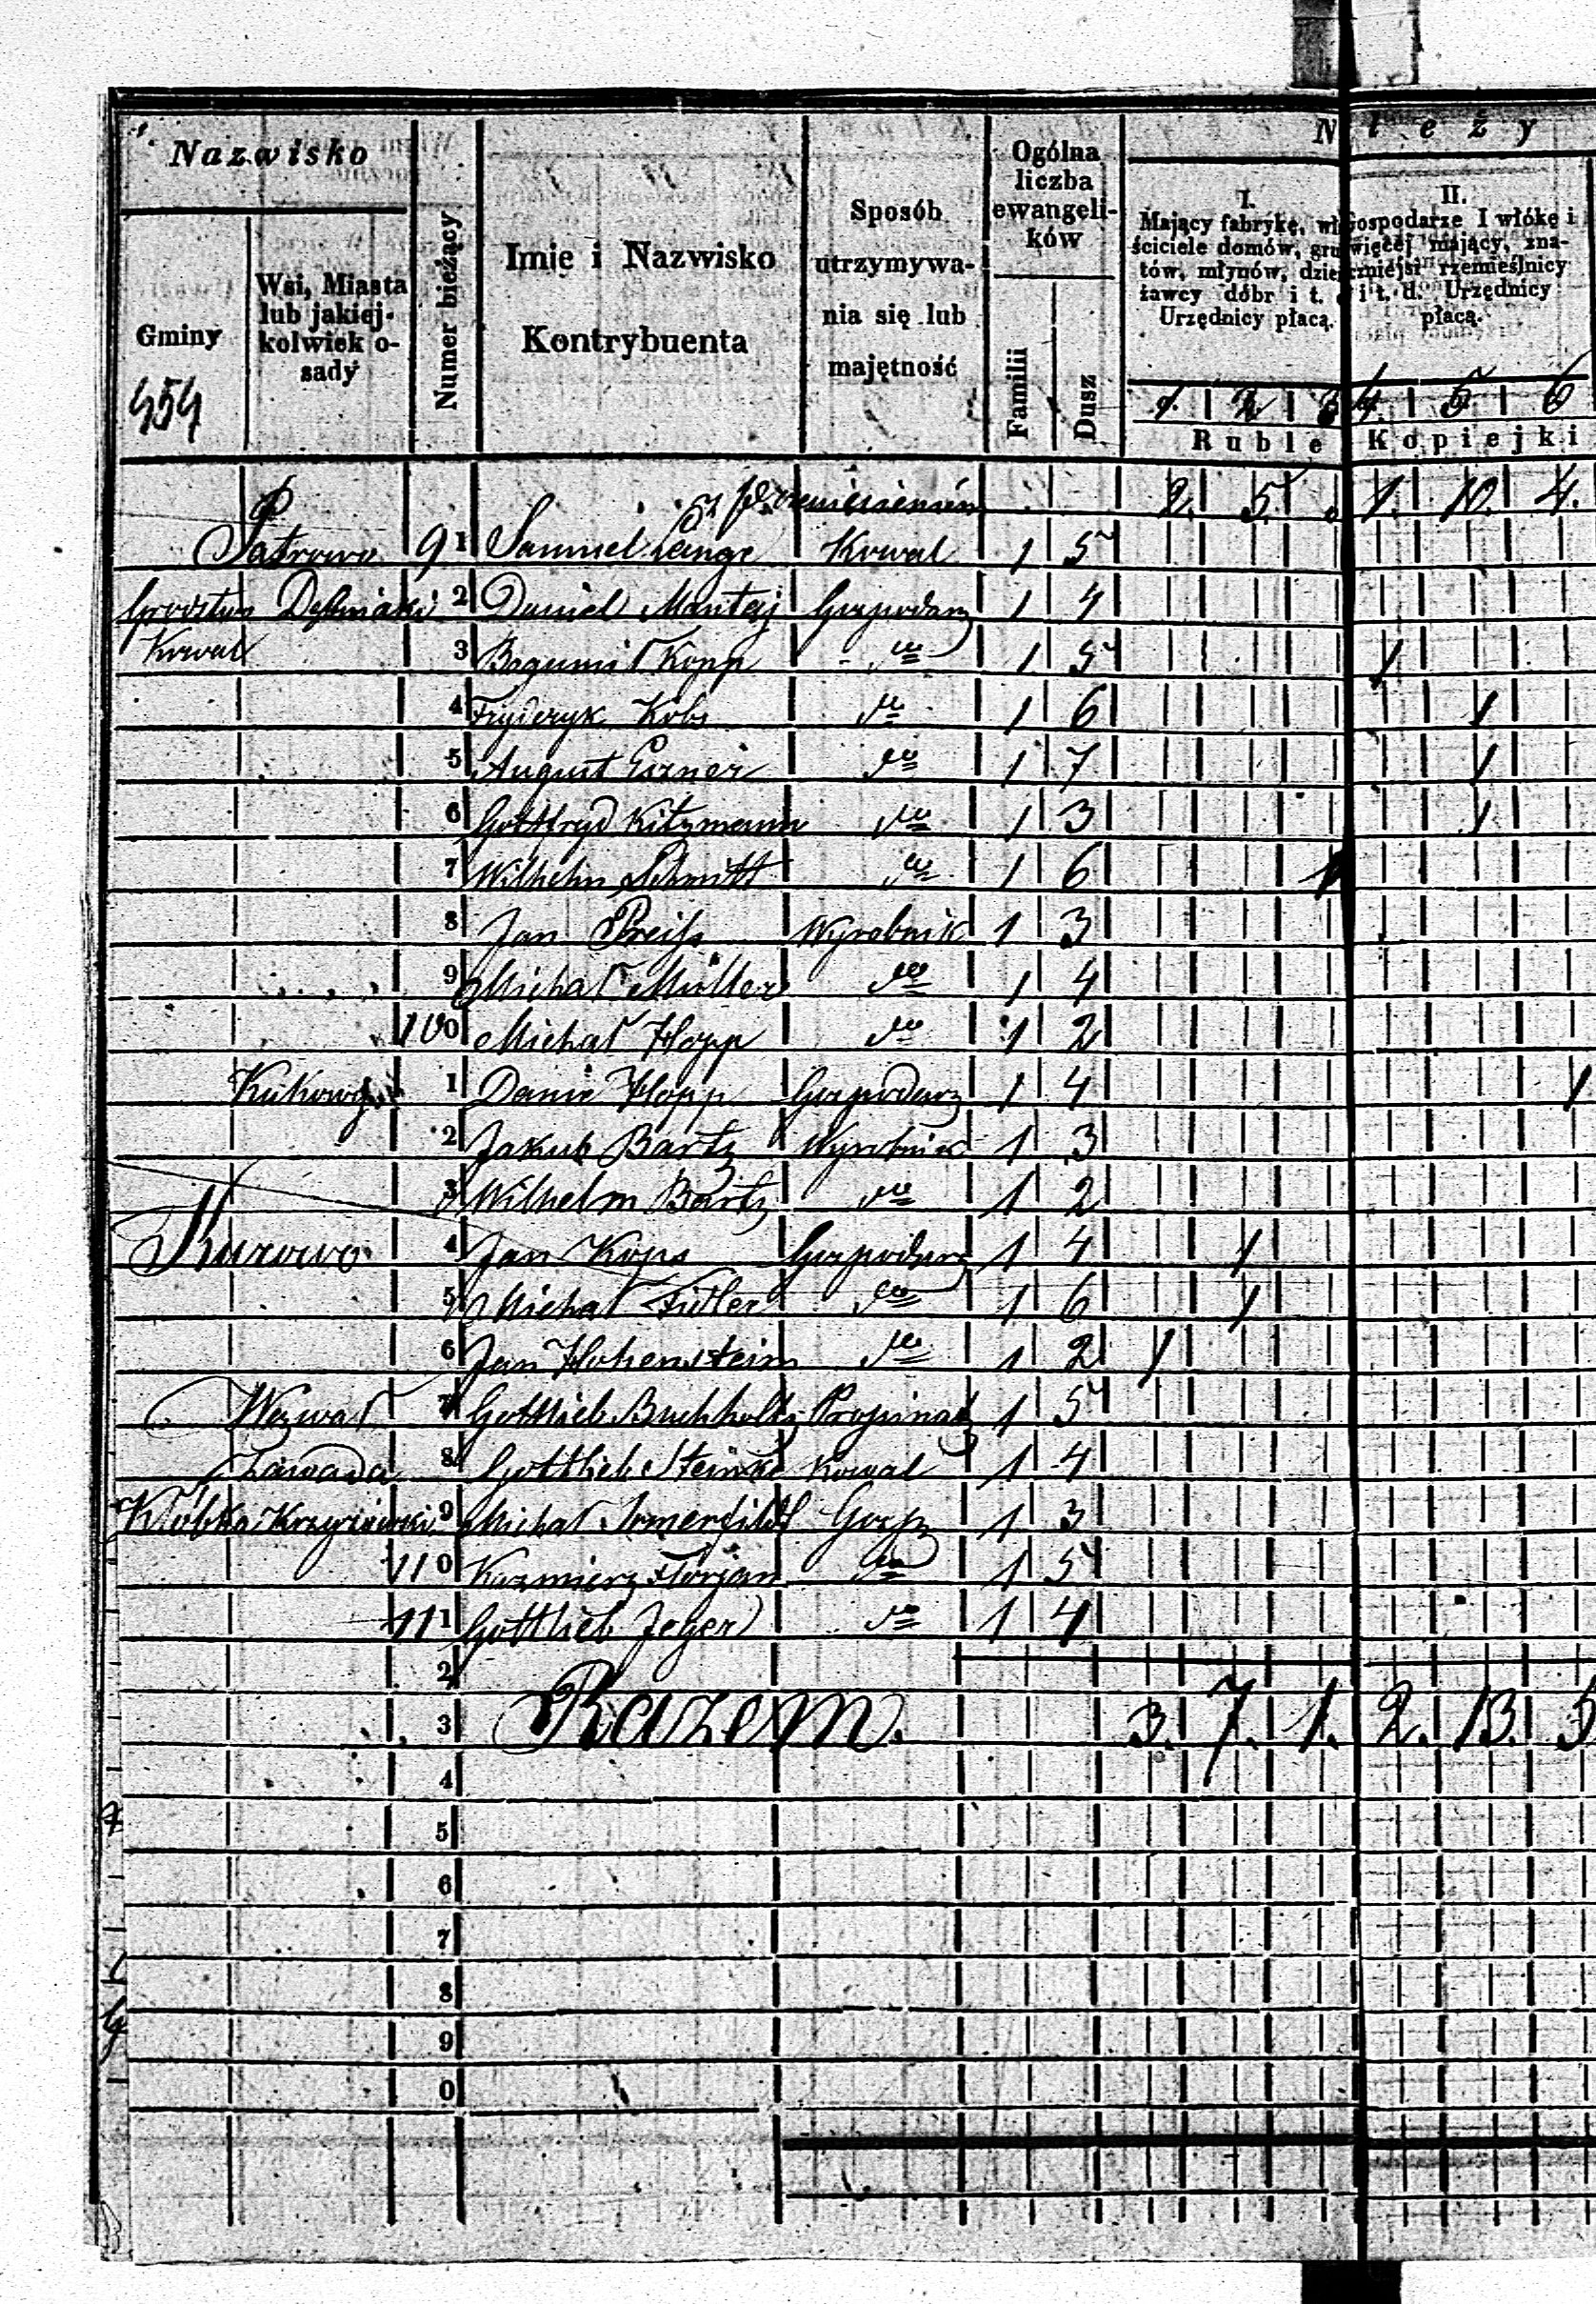 Nazwisko
N leży
Gminy
Wsi, Miasta lub jakiej-kolwiek o-sady
Numer bieżący
Imie i Nazwisko
Kontrybuenta
Sposób utrzymywa-nia się lub majętność
Ogólna liczba ewangeli-ków
Familii
Dusz
I.
Mający fabrykę, wł
ściciele domów, gru
tów, młynów, dzier
żawcy dóbr i t. d
Urzędnicy płacą.
II.
Gospodarze I włókę i
więcéj mający, zna-
czniejsi rzemieślnicy
i t. d. Urzędnicy
płacą.
454
1. 2 3 4. 5 6
Ruble Kopiejki
z przeniesieniem 2. 5. 1. 10. 4.
91 Samuel Lange Kowal 1 5
2 Daniel Mantej Gospodarz 1 4
Kowal 3 Bogumił Kopp do 1 5 1
4 Fryderyk Kobs do 1 6 1
5 August Eszner do 1 7 1
6 Gottfryd Kitzmann do 1 3 1
7 Wilhelm Schmitt do 1 6 1
8 Jan Preiss Wyrobnik 1 3
9 Michał Müller do 1 4
100 Michał Hopp do 1 2
1 Hopp Gospodarz 1 4 1
2 Jakub Bartz Wyrobnik 1 3
3 Wilhelm Bartz do 1 2
Kurowo 4 Jan Kops Gospodarz 1 4 1
5 Michał Fidler do 1 6 1
6 Jan Hohenstein do 1 2 1
7 Gottlieb Buchholtz 1 5
Zawada 8 Gottlieb Steinke Kowal 1 4
Kłóbka 9 Michał 1 3
110 Kazmierz Florjan do 1 5
111 Gottlieb Jeger do 1 4
2
3 Razem. 3. 7. 1. 2. 13. 5
4
5
6
7
8
9
0